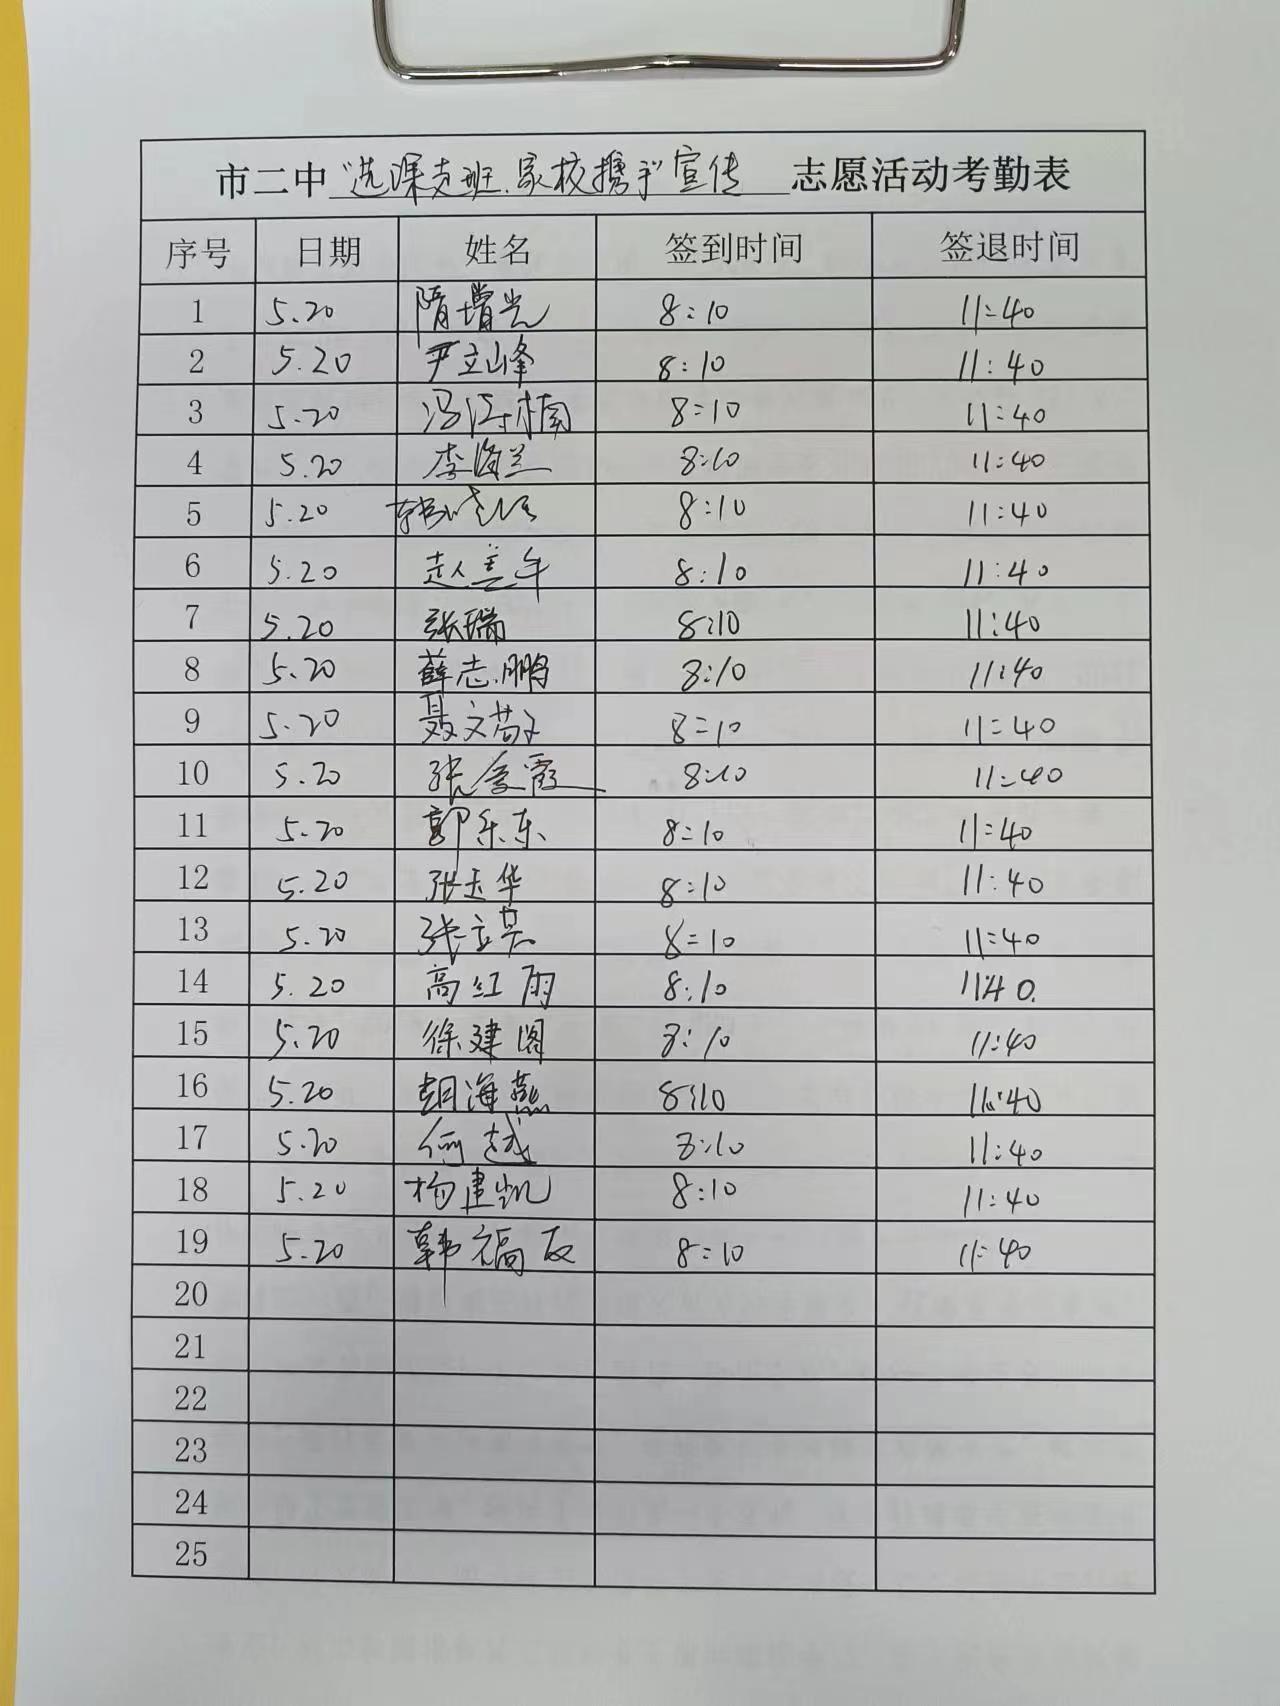 市二中"选课走班、家校携手"宣传 志愿活动考勤表
序号 日期 姓名 签到时间 签退时间
1 5.20 隋增光 8:10 11:40
2 5.20 尹立峰 8:10 11:40
3 5.20 冯江楠 8:10 11:40
4 5.20 李海兰 8:10 11:40
5 5.20 8:10 11:40
6 5.20 8:10 11:40
7 5.20 张瑞 8:10 11:40
8 5.20 薛志鹏 8:10 11:40
9 5.20 聂文苟子 8:10 11:40
10 5.20 张金霞 8:10 11:40
11 5.20 郭乐东 8:10 11:40
12 5.20 张玉华 8:10 11:40
13 5.20 张立英 8:10 11:40
14 5.20 高红雨 8:10 11:40.
15 5.20 徐建阁 8:10 11:40
16 5.20 胡海燕 8:10 11:40
17 5.20 何越 8:10 11:40
18 5.20 杨建凯 8:10 11:40
19 5.20 韩福友 8:10 11:40
20
21
22
23
24
25